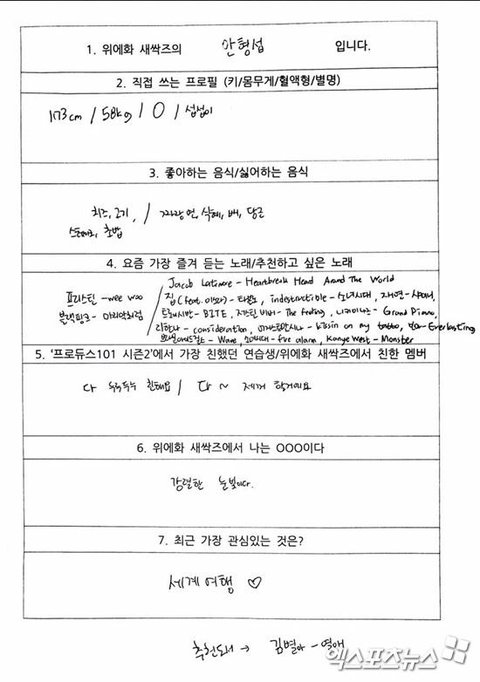 1. 위에화 새싹즈의 안형섭 입니다.
2. 직접 쓰는 프로필 (키/몸무게/혈액형/별명)
173cm / 58kg / O / 섭섭이
3. 좋아하는 음식/싫어하는 음식
치즈, 고기, / 짜장면, 식혜, 배, 당근
스테이크, 초밥
4. 요즘 가장 즐겨 듣는 노래/추천하고 싶은 노래
Jacob Latimore - Heartbreak Head Around The World
프리스틴 - wee woo / 집 (feat. 이하이) - 타블로, indestructible - 소녀시대,
블랙핑크 - 마지막처럼 BITE, 저스틴 비버 - The feeling, 니키미나즈 - Grand Piano,
리한나 - consideration, kissin on my tattoo, Everlasting
Wave, fire alarm, Kanye West - Monster
5. '프로듀스101 시즌2'에서 가장 친했던 연습생/위에화 새싹즈에서 친한 멤버
다 두루두루 친해요 / 다 ~ 제꺼 할거예요
6. 위에화 새싹즈에서 나는 OOO이다
강렬한 눈빛이다.
7. 최근 가장 관심있는 것은?
세계여행 ♡
추천도서 → 김별아 - 열애
엑스포츠뉴스